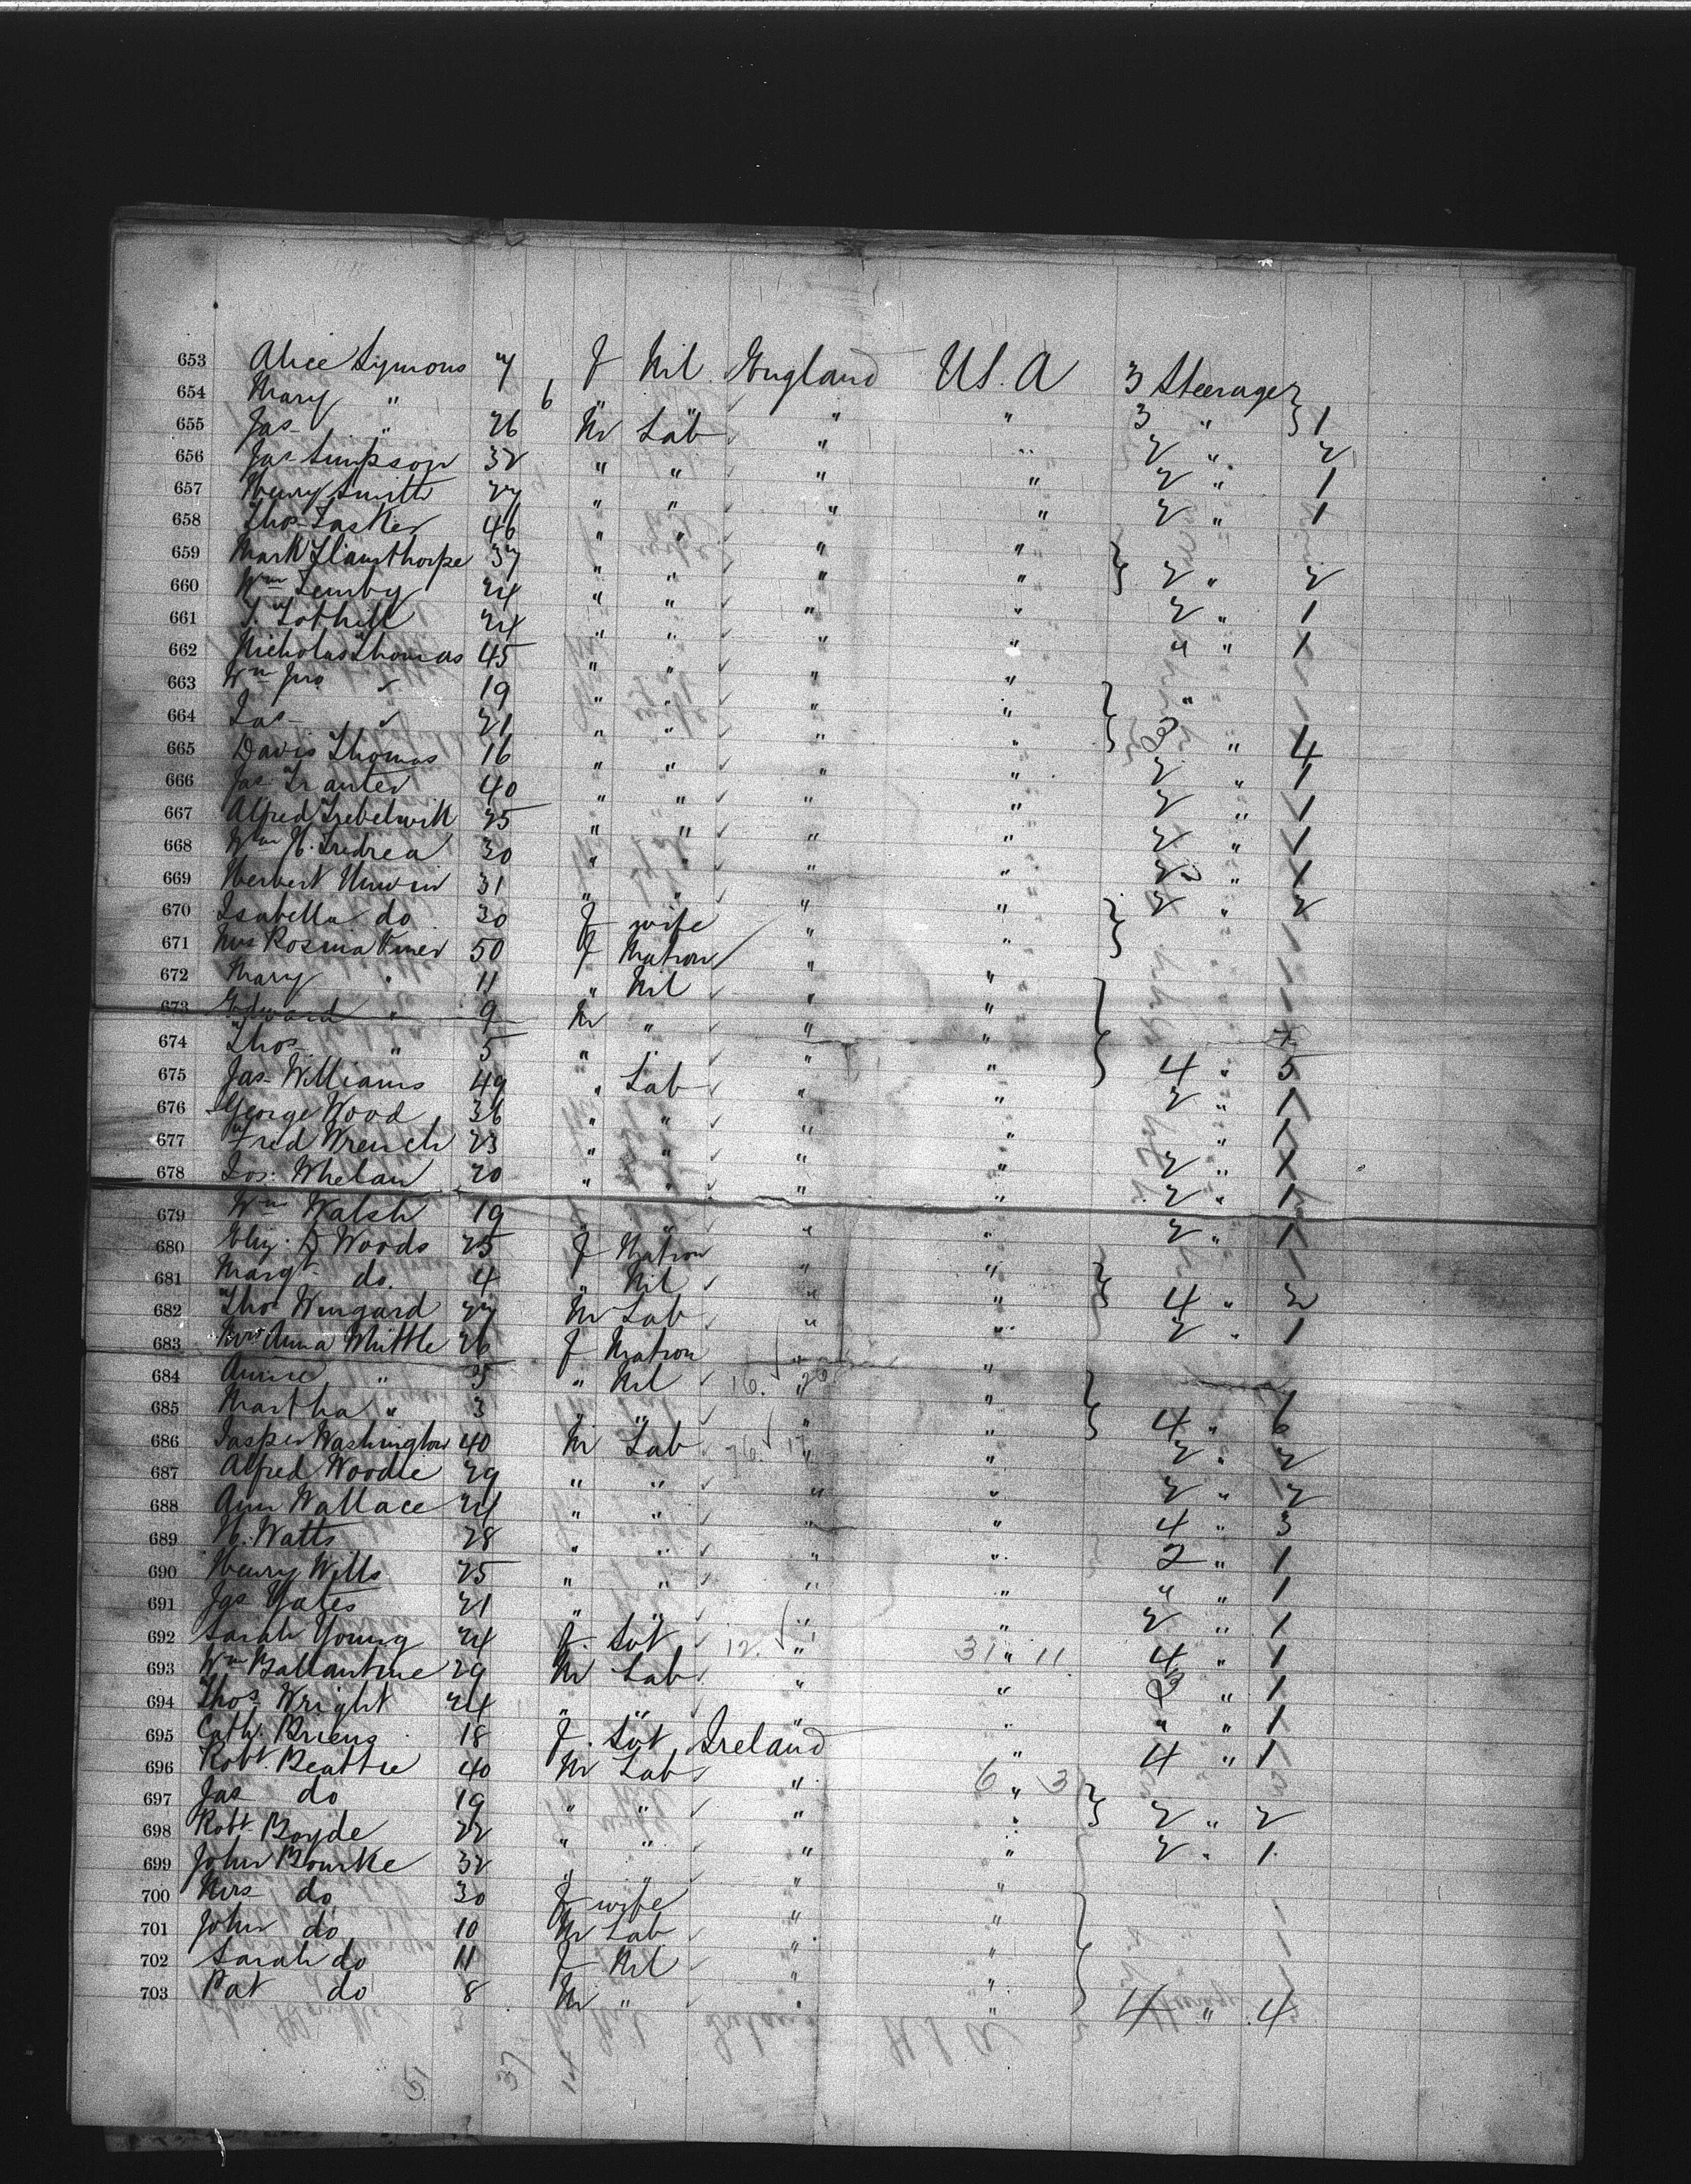 653 Alice Symons 7 F Nil England U.S.A 3 Steerage
654 Mary " 6 " " " 3 " 1
655 Jas " 26 M Lab " " 2 " 2
656 Jas Simpson 32 " " " " 2 " 1
657 Henry Smith 27 " " " " 2 " 1
658 Thos Tasker 46 " " " "
659 Mark 37 " " " " 2 " 2
660 Wm 24 " " " " 2 " 1
661 24 " " " " " " 1
662 Nicholas Thomas 45 " " " "
663 Wm Jno " 19 " " " " "
664 Jas " 21 " " " " " 4
665 Davis Thomas 16 " " " " 2 " 1
666 Jas Tranter 40 " " " " 2 " 1
667 Alfred 25 " " " " 2 " 1
668 Wm H. Tredrea 30 " " " " 2 " 1
669 Herbert Unwin 31 " " " " 2 " 2
670 Isabella do 30 F wife " "
671 Mrs Rosina 50 F Matron " "
672 Mary " 11 " Nil " "
673 Edward " 9 M " " "
674 Thos " 5 " " " " 4 " 5
675 Jas Williams 49 " Lab " " 2 " 1
676 George Wood 36 " " " " " 1
677 Fred Wrench 23 " " " " 2 " 1
678 Jos: Whelan 20 " " " " 2 " 1
679 Wm Walsh 19 " " " " 2 " 1
680 Eliz. D Woods 25 F Matron " "
681 Margt do. 4 " Nil " " 4 " 2
682 Thos Wingard 27 M Lab " " 2 " 1
683 Mrs Anna Whittle 26 F Matron " "
684 Annie " 5 " Nil 16. " " 1
685 Martha " 3 " " " " 4 " 6
686 Jasper Washington 40 M Lab " " 2 " 2
687 Alfred Woodle 29 " " " " 2 " 2
688 Ann Wallace 24 " " " " 4 " 3
689 H. Watts 28 " " " " 2 " 1
690 Henry Wills 25 " " " " " " 1
691 Jas Yates 21 " " " " 2 " 1
692 Sarah Young 24 F. 12. " 31 " 11 4 " 1
693 Wm Ballantine 29 M Lab " " " 1
694 Thos Wright 24 " " " " " " 1
695 Cath. 18 F. Ireland " 4 " 1
696 Robt. Beattie 40 M Lab " 6 " 3
697 Jas do 19 " " " " 2 " 2
698 Robt Boyde 22 " " " " 2 " 1
699 John Bourke 32 " " " "
700 Mrs do 30 F wife " "
701 John do 10 M Lab " "
702 Sarah do 11 F Nil " "
703 Pat do 8 M " " " 4 " 4